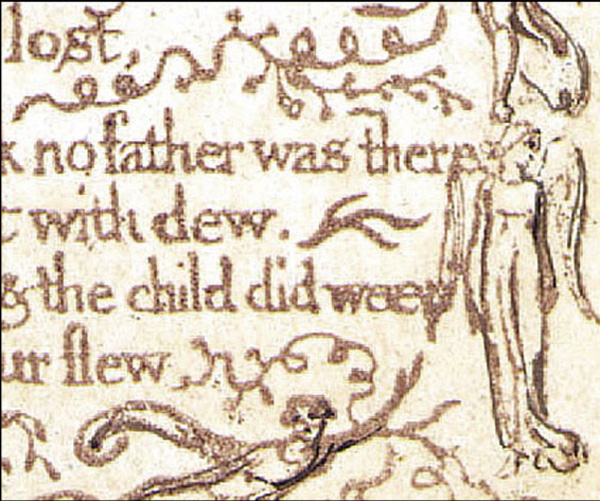 lost,
k no father was there
t with dew.
& the child did weep
ur flew.